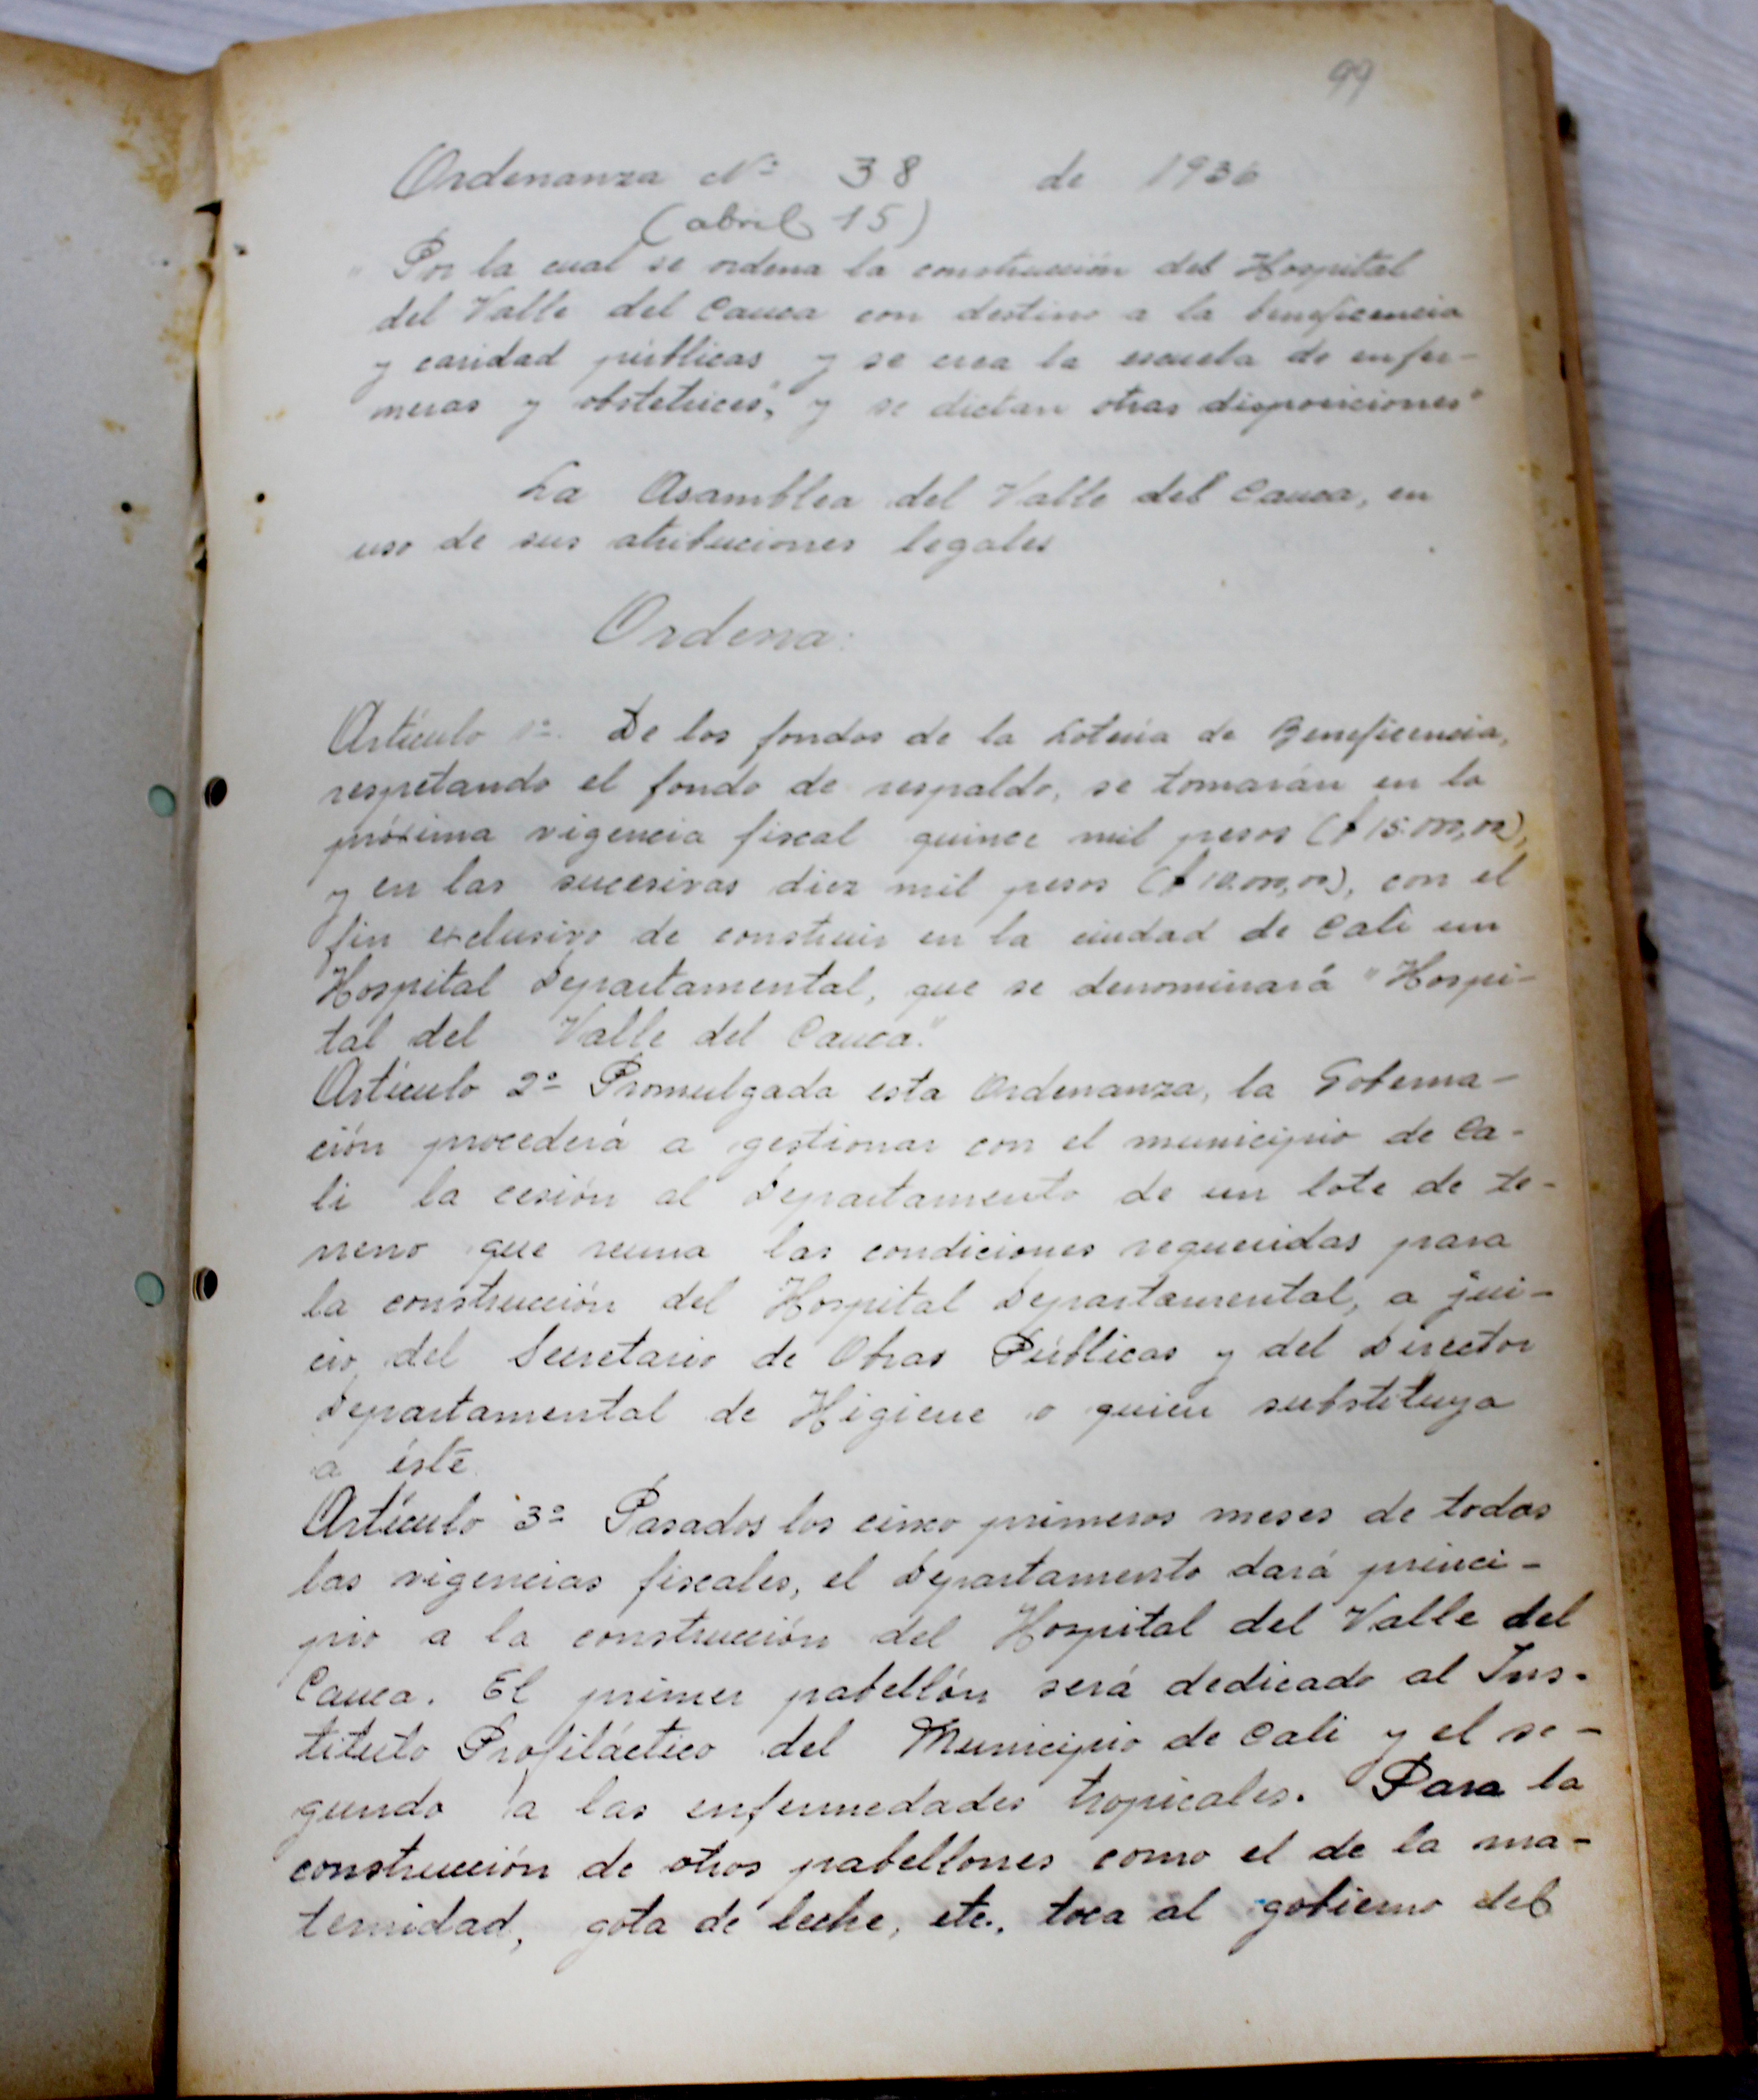 99
Ordenanza Nº 38 de 1936
(abril 15)
"Por la cual se ordena la construcción del Hospital
del Valle del Cauca con destino a la beneficencia
y caridad públicas y se crea la escuela de enfer-
meras y obstetrices", y se dictan otras disposiciones"
La Asamblea del Valle del Cauca, en
uso de sus atribuciones legales
Ordena:
Artículo 1º. De los fondos de la Lotería de Beneficencia,
respetando el fondo de respaldo, se tomarán en la
próxima vigencia fiscal quince mil pesos ($15.000,00),
y en las sucesivas diez mil pesos ($10.000,00), con el
fin exclusivo de construir en la ciudad de Cali un
Hospital Departamental, que se denominará "Hospi-
tal del Valle del Cauca."
Artículo 2º Promulgada esta Ordenanza, la Goberna-
ción procederá a gestionar con el municipio de Ca-
li la cesión al Departamento de un lote de te-
rreno que reuna las condiciones requeridas para
la construcción del Hospital Departamental, a jui-
cio del Secretario de Obras Públicas y del Director
Departamental de Higiene o quien substituya
a éste.
Artículo 3º Pasados los cinco primeros meses de todas
las vigencias fiscales, el Departamento dará princi-
pio a la construcción del Hospital del Valle del
Cauca. El primer pabellón será dedicado al Ins-
tituto Profiláctico del Municipio de Cali y el se-
gundo a las enfermedades tropicales. Para la
construcción de otros pabellones como el de la ma-
ternidad, gota de leche, etc., toca al gobierno del